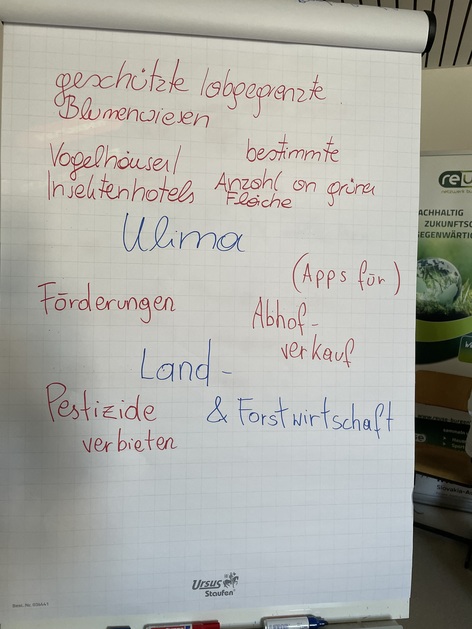 geschützte / abgegrenzte
Blumenwiesen
Vogelhäuser/
Insektenhotels
bestimmte
Anzahl an grüner
Fläche
Klima
(Apps für)
Förderungen
Abhof-
verkauf
Land-
& Forstwirtschaft
Pestizide
verbieten
Ursus
Staufen
ACHHALTIG
ZUKUNFTSO
EGENWÄRTIG